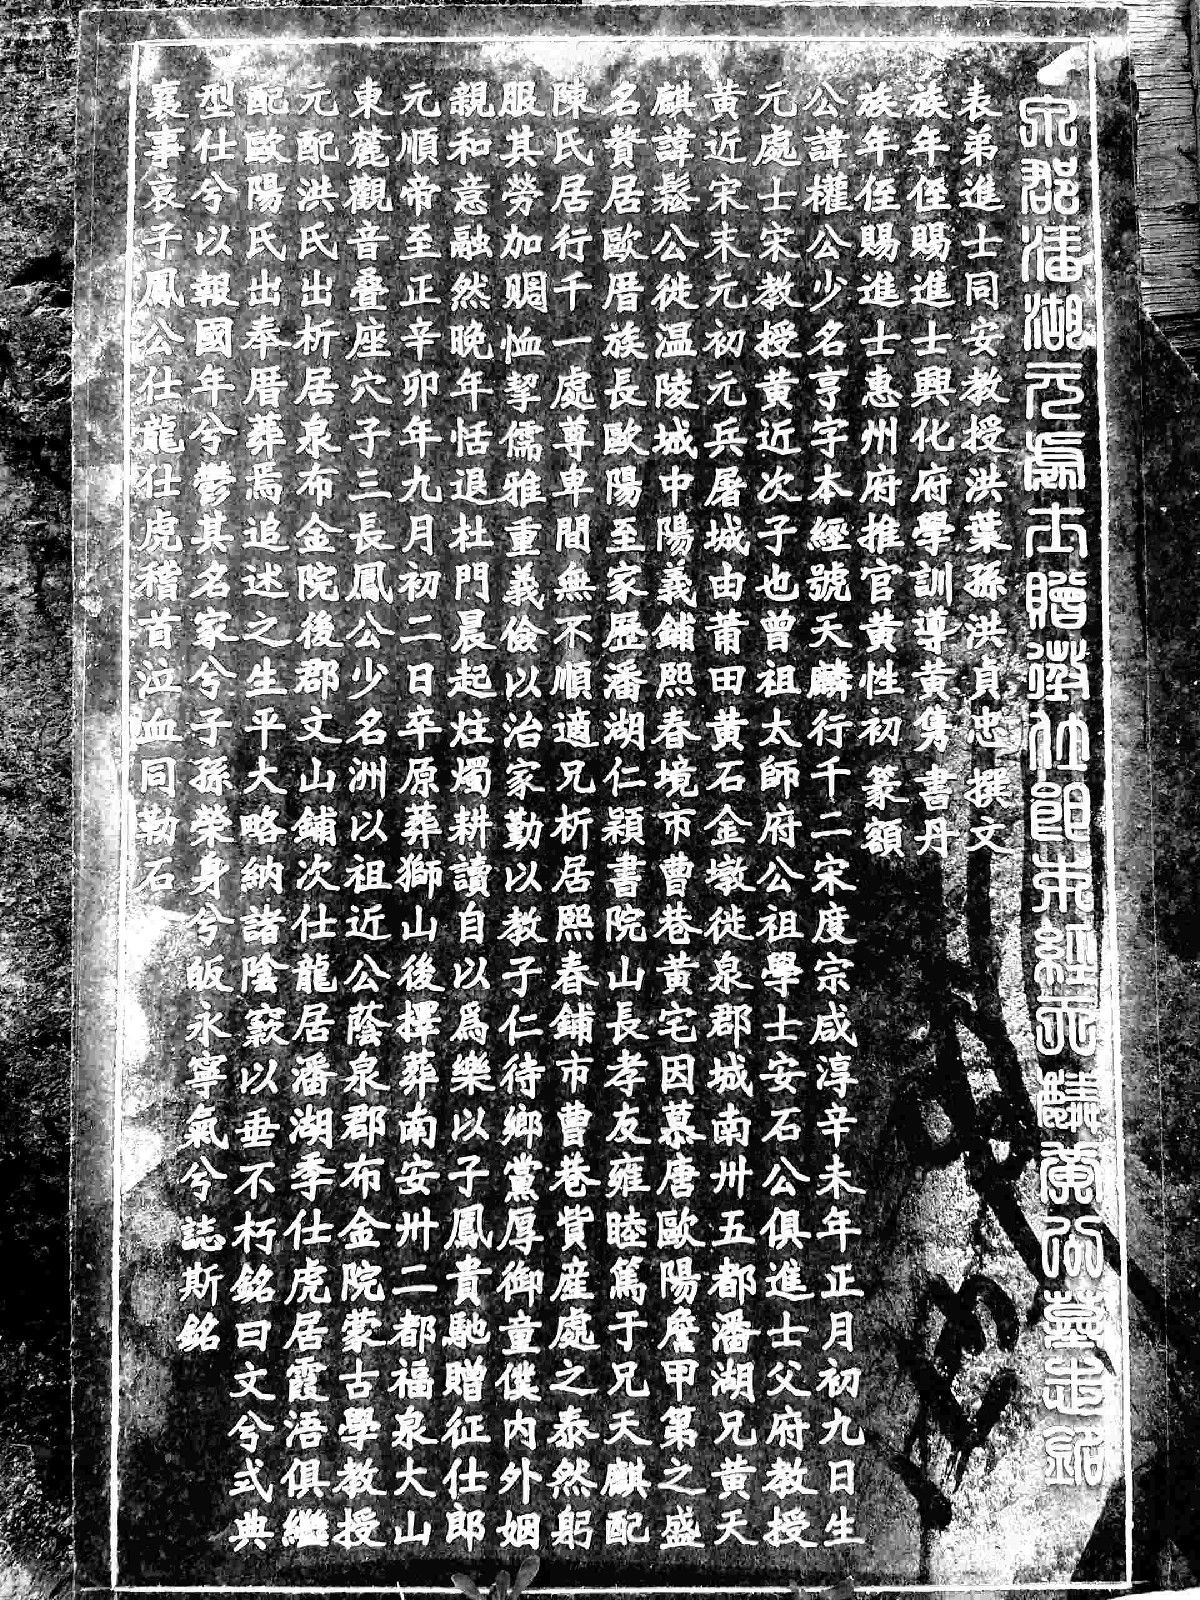 泉郡潘湖元處士贈徵仕郎本經天麟黃公墓志銘
表弟進士同安教授洪葉孫洪貞忠 撰文
族年侄賜進士興化府學訓導黃雋 書丹
族年侄賜進士惠州府推官黃性初 篆額
公諱權公少名亨字本經號天麟行千二宋度宗咸淳辛未年正月初九日生
元處士宋教授黃近次子也曾祖太師府公祖學士安石公俱進士父府教授
黃近宋末元初元兵屠城由莆田黃石金墩徙泉郡城南卅五都潘湖兄黃天
麒諱鬆公徙温陵城中陽義鋪熙春境市曹巷黃宅因慕唐歐陽詹甲第之盛
名贅居歐厝族長歐陽至家歷潘湖仁穎書院山長孝友雍睦篤于兄天麒配
陳氏居行千一處尊卑間無不順適兄析居熙春鋪市曹巷貲産處之泰然躬
服其勞加賙恤挈儒雅重義儉以治家勤以教子仁待鄉黨厚御童僕内外姻
親和意融然晚年恬退杜門晨起炷燭耕讀自以爲樂以子鳳貴馳贈征仕郎
元順帝至正辛卯年九月初二日卒原葬獅山後擇葬南安卅二都福泉大山
東麓觀音叠座穴子三長鳳公少名洲以祖近公蔭泉郡布金院蒙古學教授
元配洪氏出析居泉布金院後郡文山鋪次仕龍居潘湖季仕虎居霞浯俱繼
配歐陽氏出奉厝葬焉追述之生平大略納諸陰竅以垂不朽銘曰文兮式典
型仕兮以報國年兮鬱其名家兮子孫榮身兮皈永寧氣兮誌斯銘
襄事哀子鳳公仕龍仕虎稽首泣血同勒石